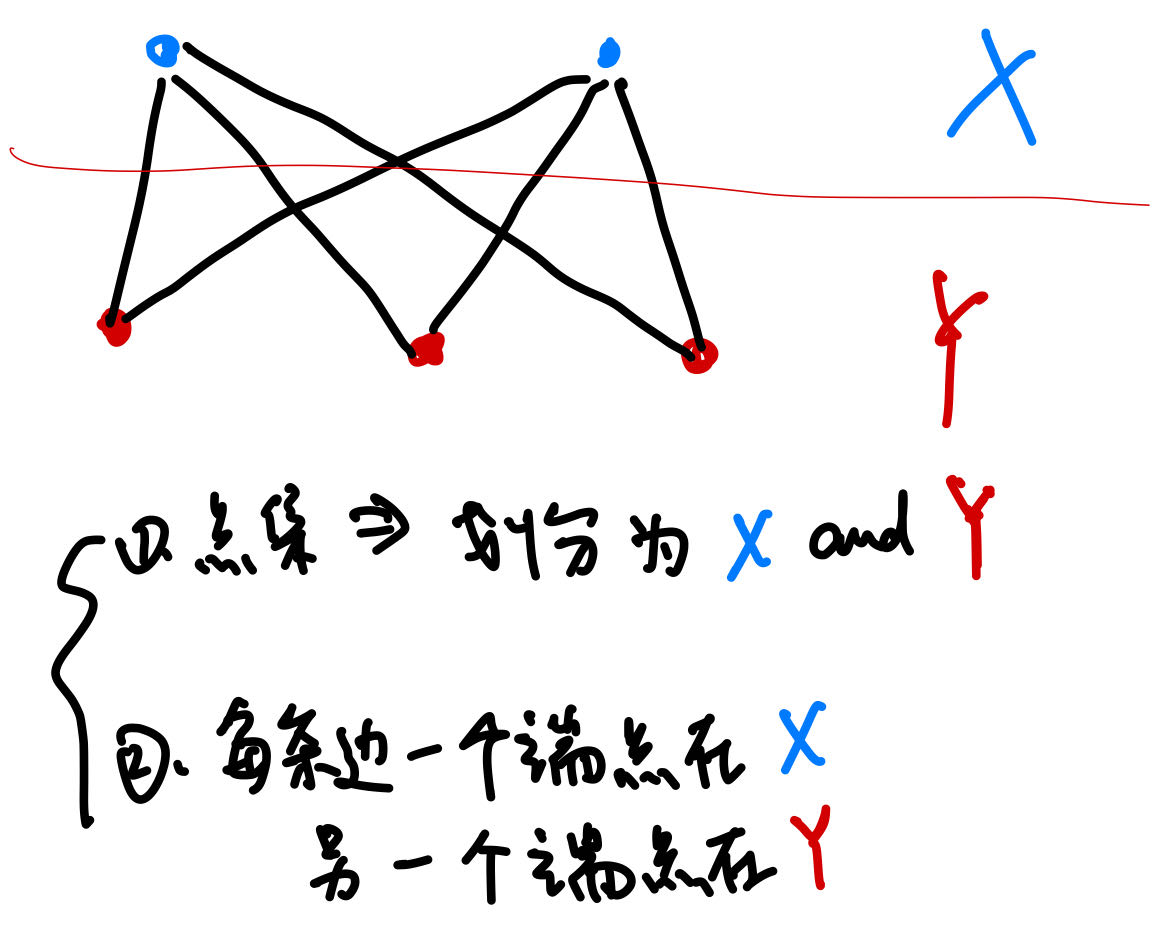 X
Y
①.点集⇒划分为 X and Y
②.每条边一个端点在 X
另一个端点在 Y